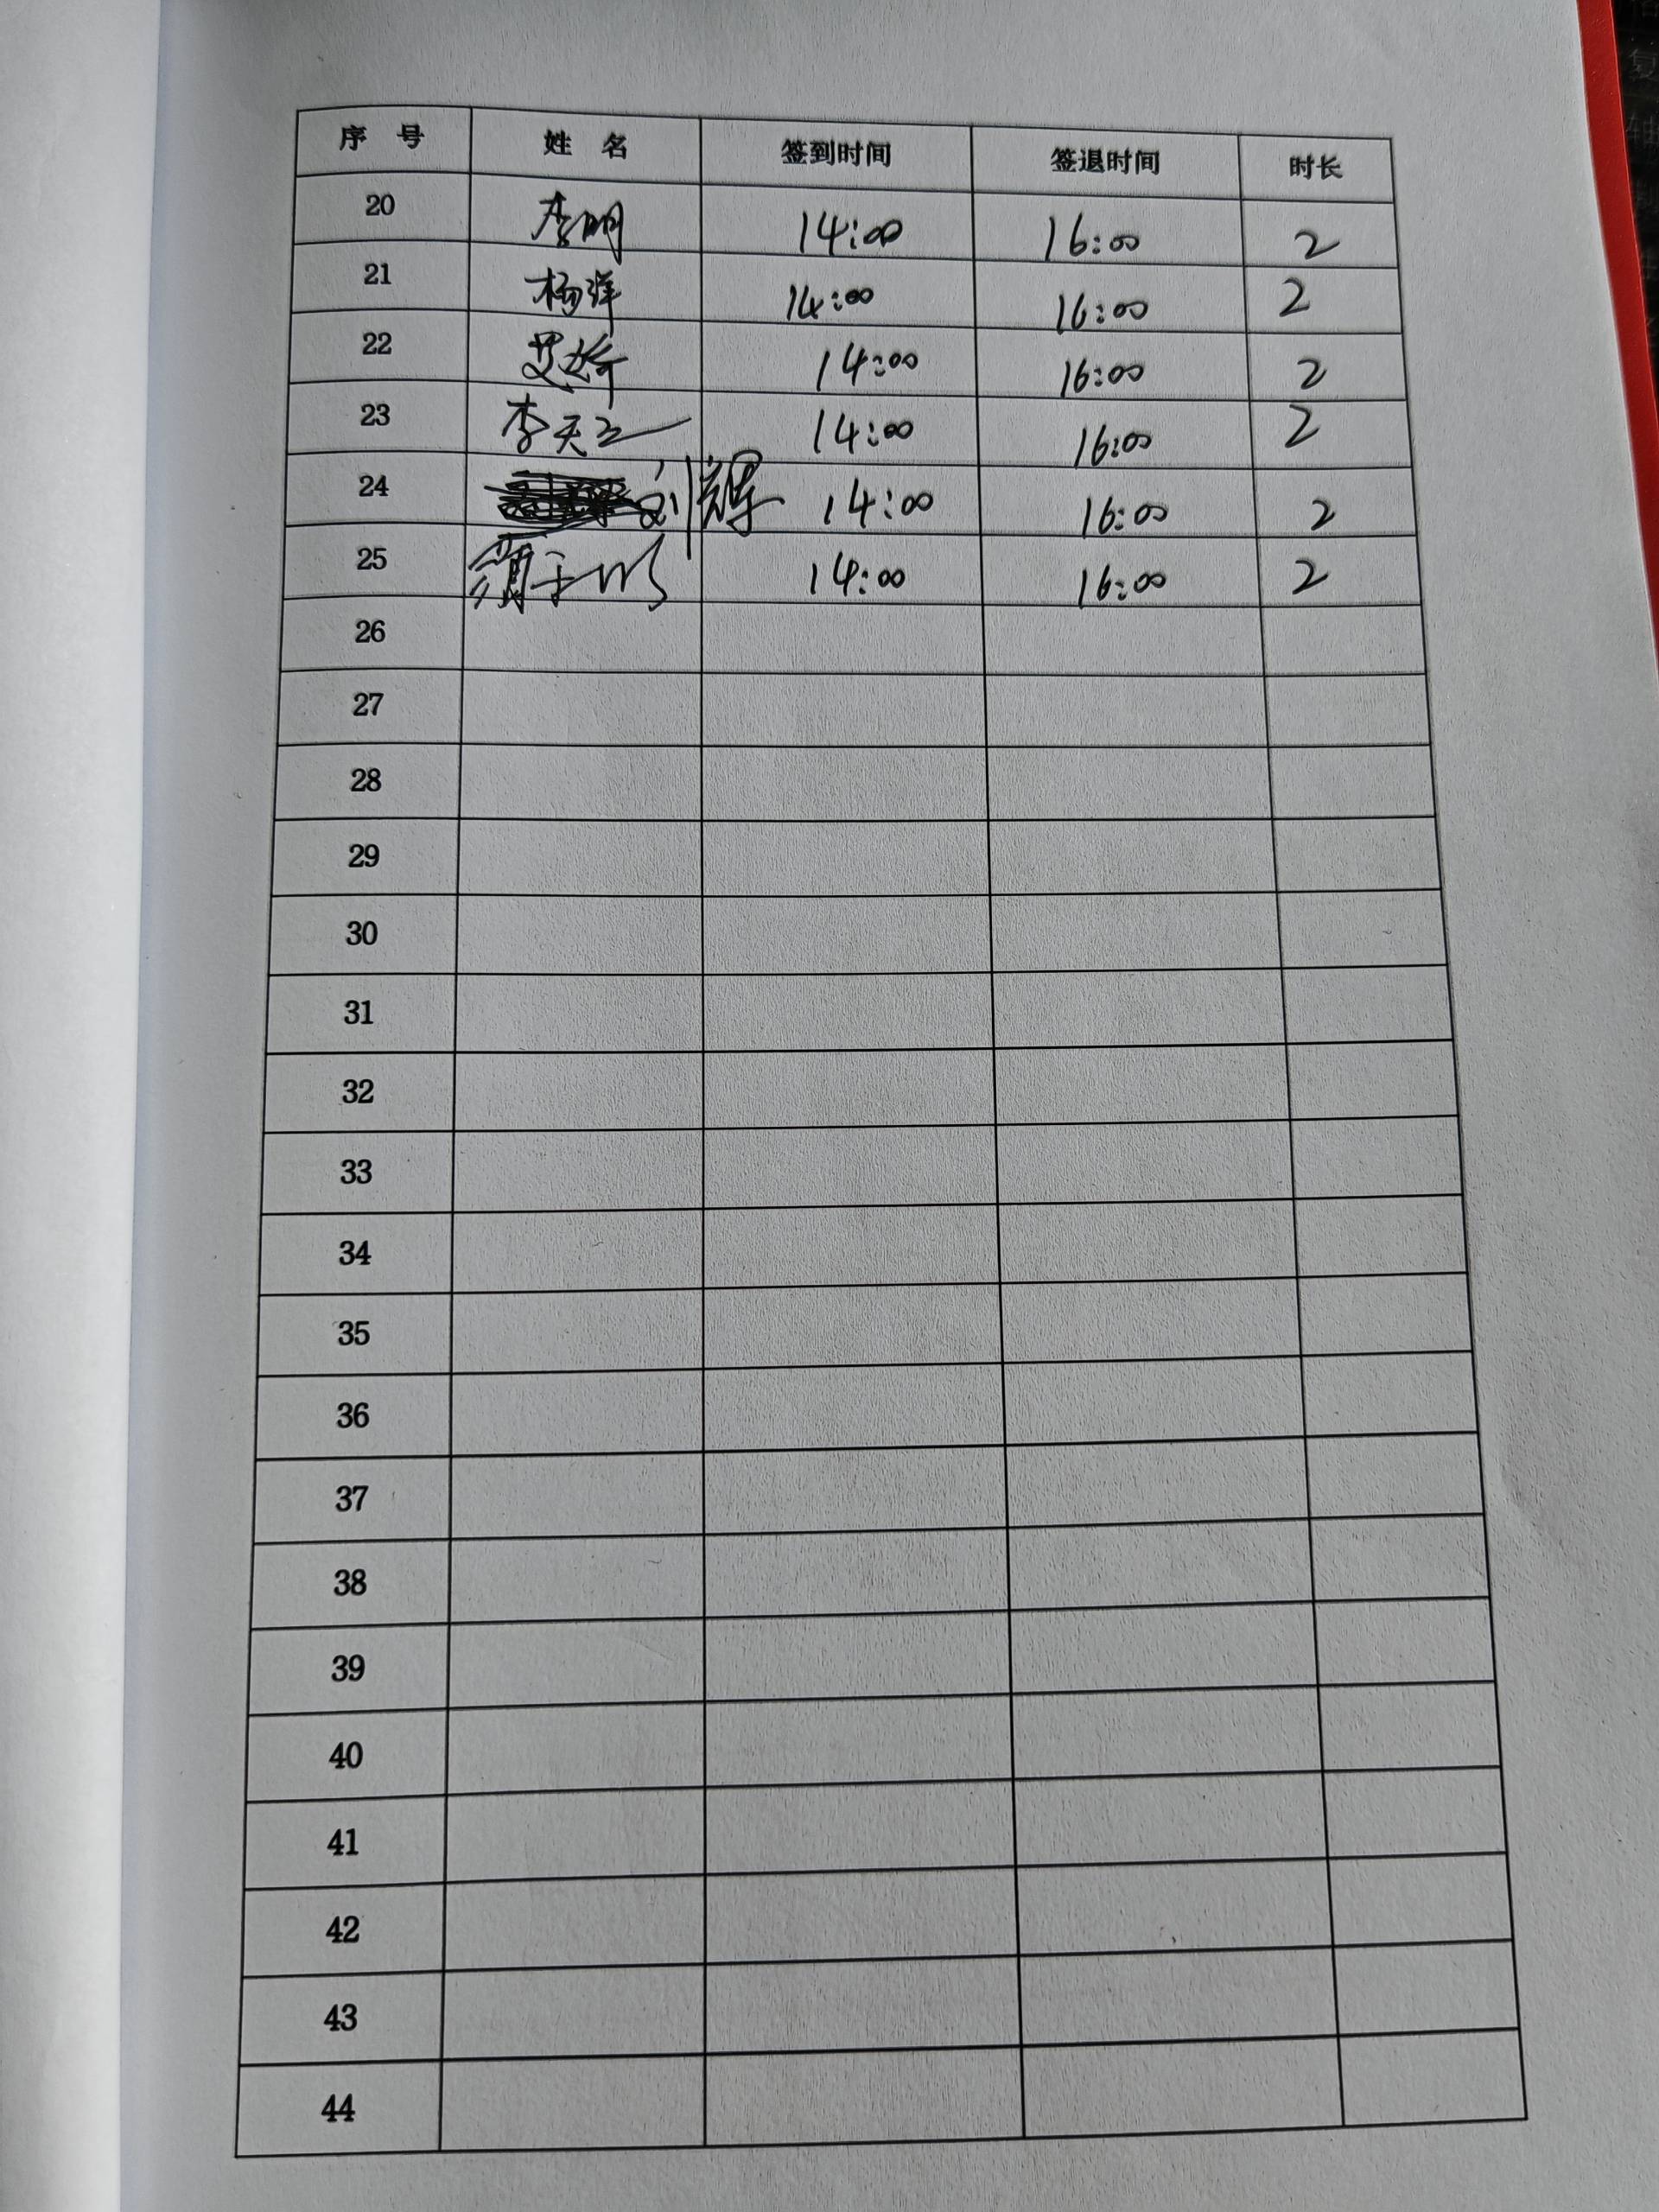 序 号 姓 名 签到时间 签退时间 时长
20 李明 14:00 16:00 2
21 杨洋 14:00 16:00 2
22 14:00 16:00 2
23 李天 14:00 16:00 2
24 刘辉 14:00 16:00 2
25 14:00 16:00 2
26
27
28
29
30
31
32
33
34
35
36
37
38
39
40
41
42
43
44